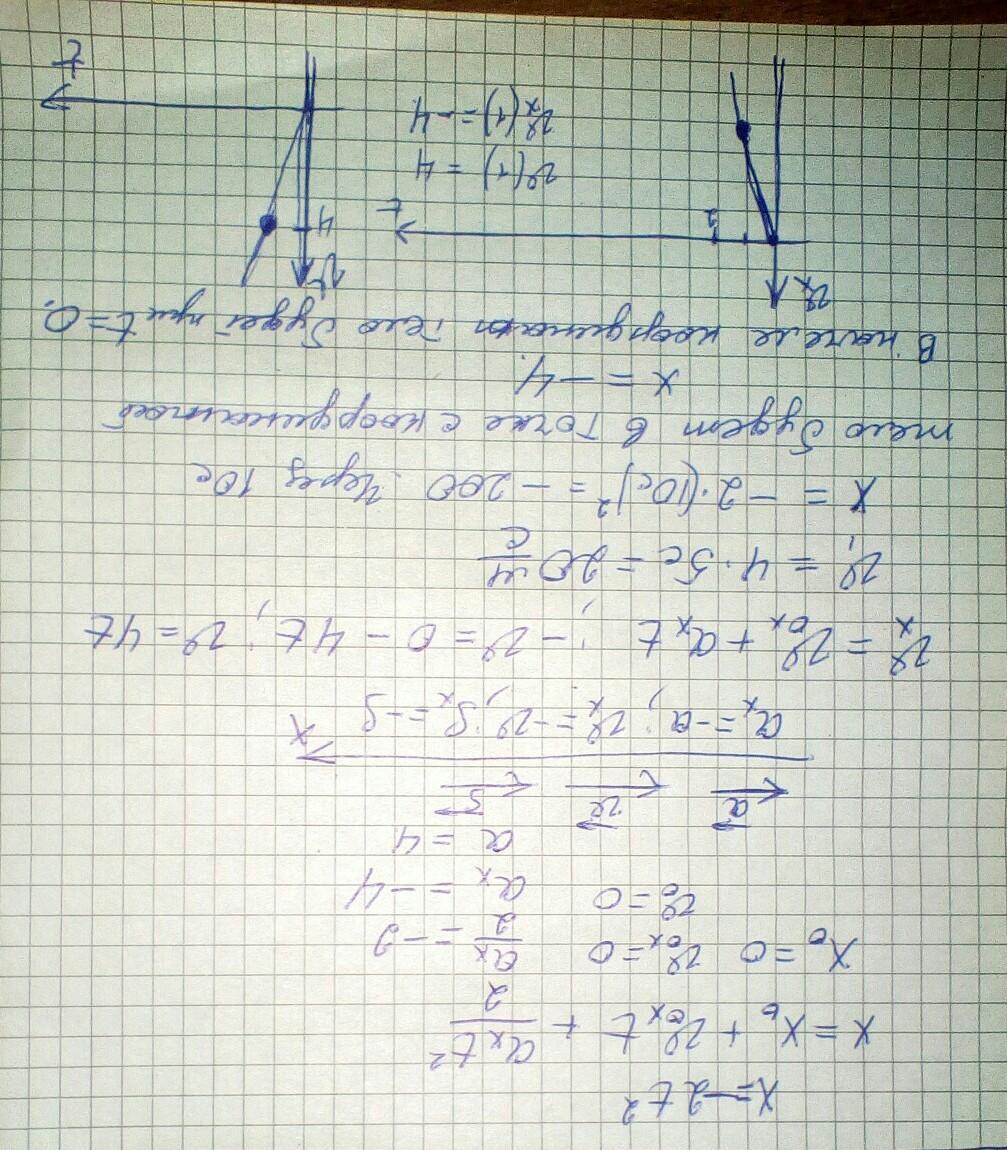 x = -2t²
x = x₀ + v₀ₓt + aₓt²/2
x₀ = 0 v₀ₓ = 0 aₓ/2 = -2
v₀ = 0 aₓ = -4
a = 4
a v S
x
aₓ = -a; vₓ = -v; Sₓ = -S
vₓ = v₀ₓ + aₓt; -v = 0 - 4t; v = 4t
v₁ = 4·5c = 20 м/с
x = -2·(10c)² = -200. Через 10с
тело будет в точке с координатой
x = -4.
В начале координат тело будет при t = 0.
vₓ
2 t
v(1) = 4
vₓ(1) = -4
v
4
t